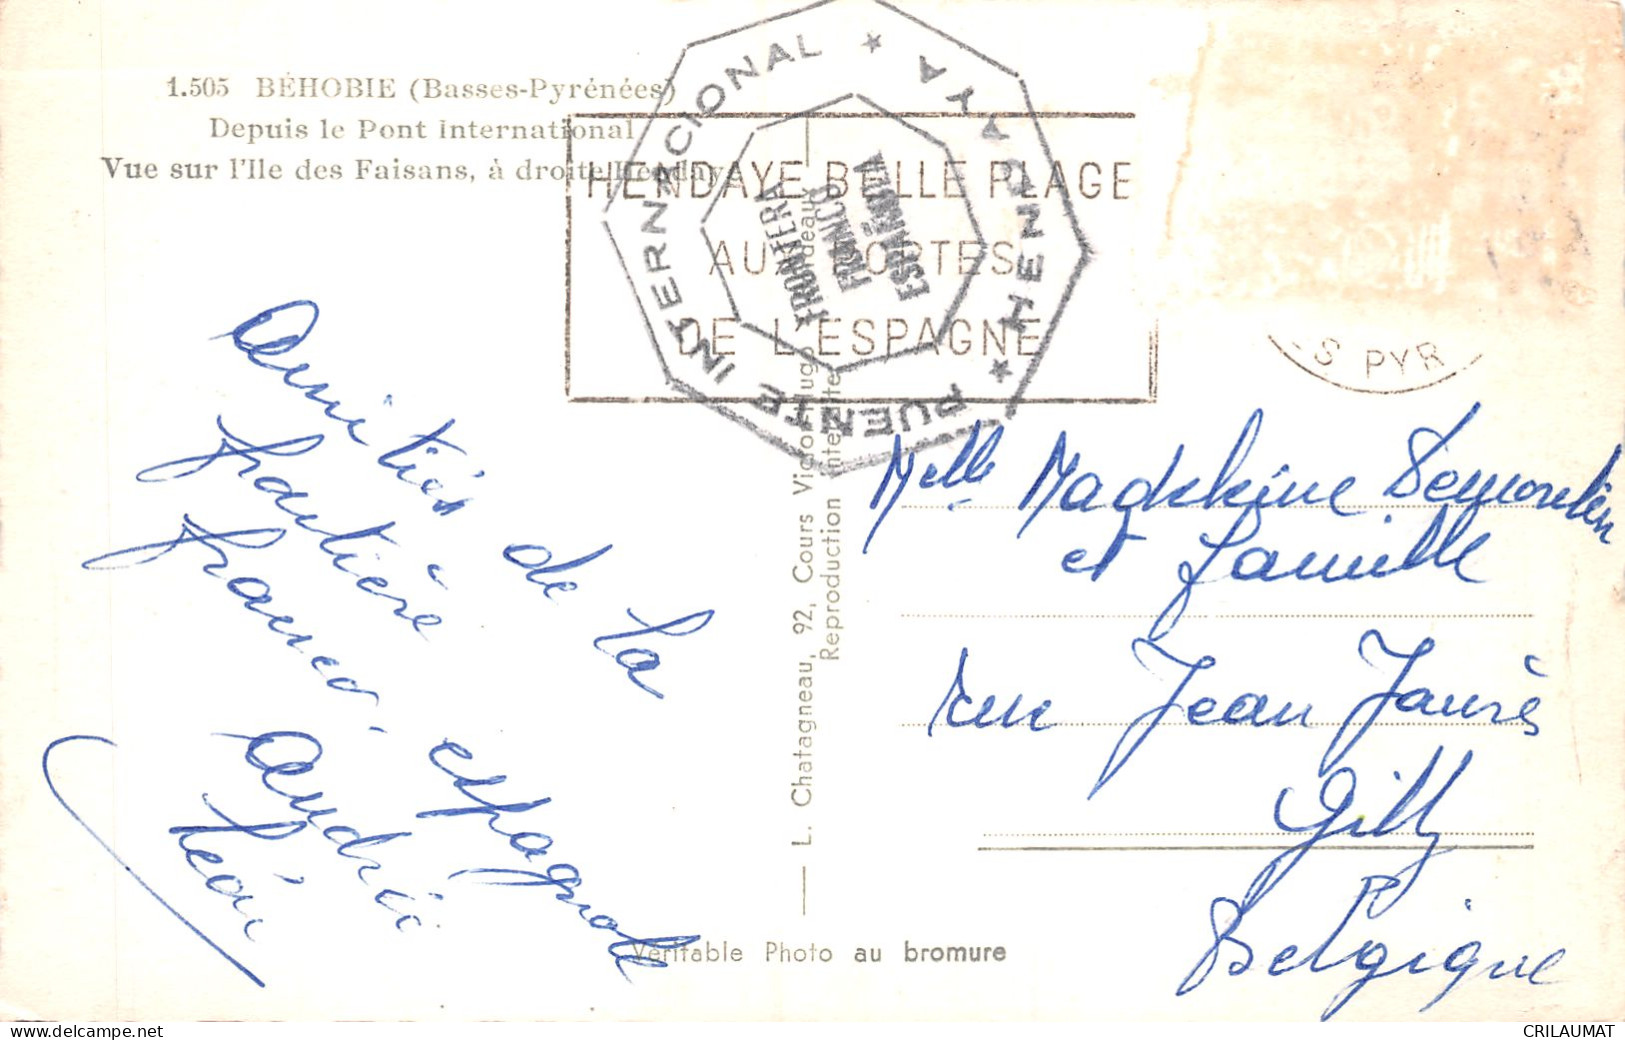 1.505 BÉHOBIE (Basses-Pyrénées)
Depuis le Pont International
Vue sur l'Ile des Faisans, à droite Hendaye
HENDAYE BELLE PLAGE
AUX PORTES
DE L'ESPAGNE
★ PUENTE INTERNACIONAL ★ HENDAYA
FRONTERA
FRANCO
ESPAÑOLA
S PYR
Amitiés de la
frontière
franco-espagnole
Andrée
Léon
L. Chatagneau, 92, Cours Victor-Hugo Bordeaux
Reproduction interdite
Melle Madeleine
et famille
rue Jean Jaurès
Gilly
Belgique
Véritable Photo au bromure
www.delcampe.net
CRILAUMAT